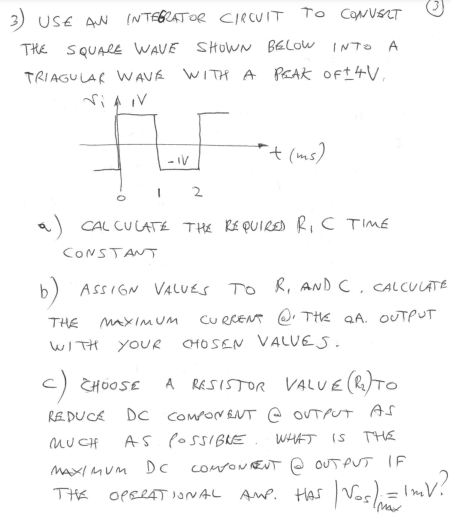 3) USE AN INTEGRATOR CIRCUIT TO CONVERT ③
THE SQUARE WAVE SHOWN BELOW INTO A
TRIAGULAR WAVE WITH A PEAK OF ±4V.
Vi 1V
-1V
t (ms)
0 1 2
a) CALCULATE THE REQUIRED R, C TIME
CONSTANT
b) ASSIGN VALUES TO R, AND C. CALCULATE
THE MAXIMUM CURRENT @ THE OA. OUTPUT
WITH YOUR CHOSEN VALUES.
c) CHOOSE A RESISTOR VALUE (R2) TO
REDUCE DC COMPONENT @ OUTPUT AS
MUCH AS POSSIBLE. WHAT IS THE
MAXIMUM DC COMPONENT @ OUTPUT IF
THE OPERATIONAL AMP. HAS |Vos|max = 1mV?